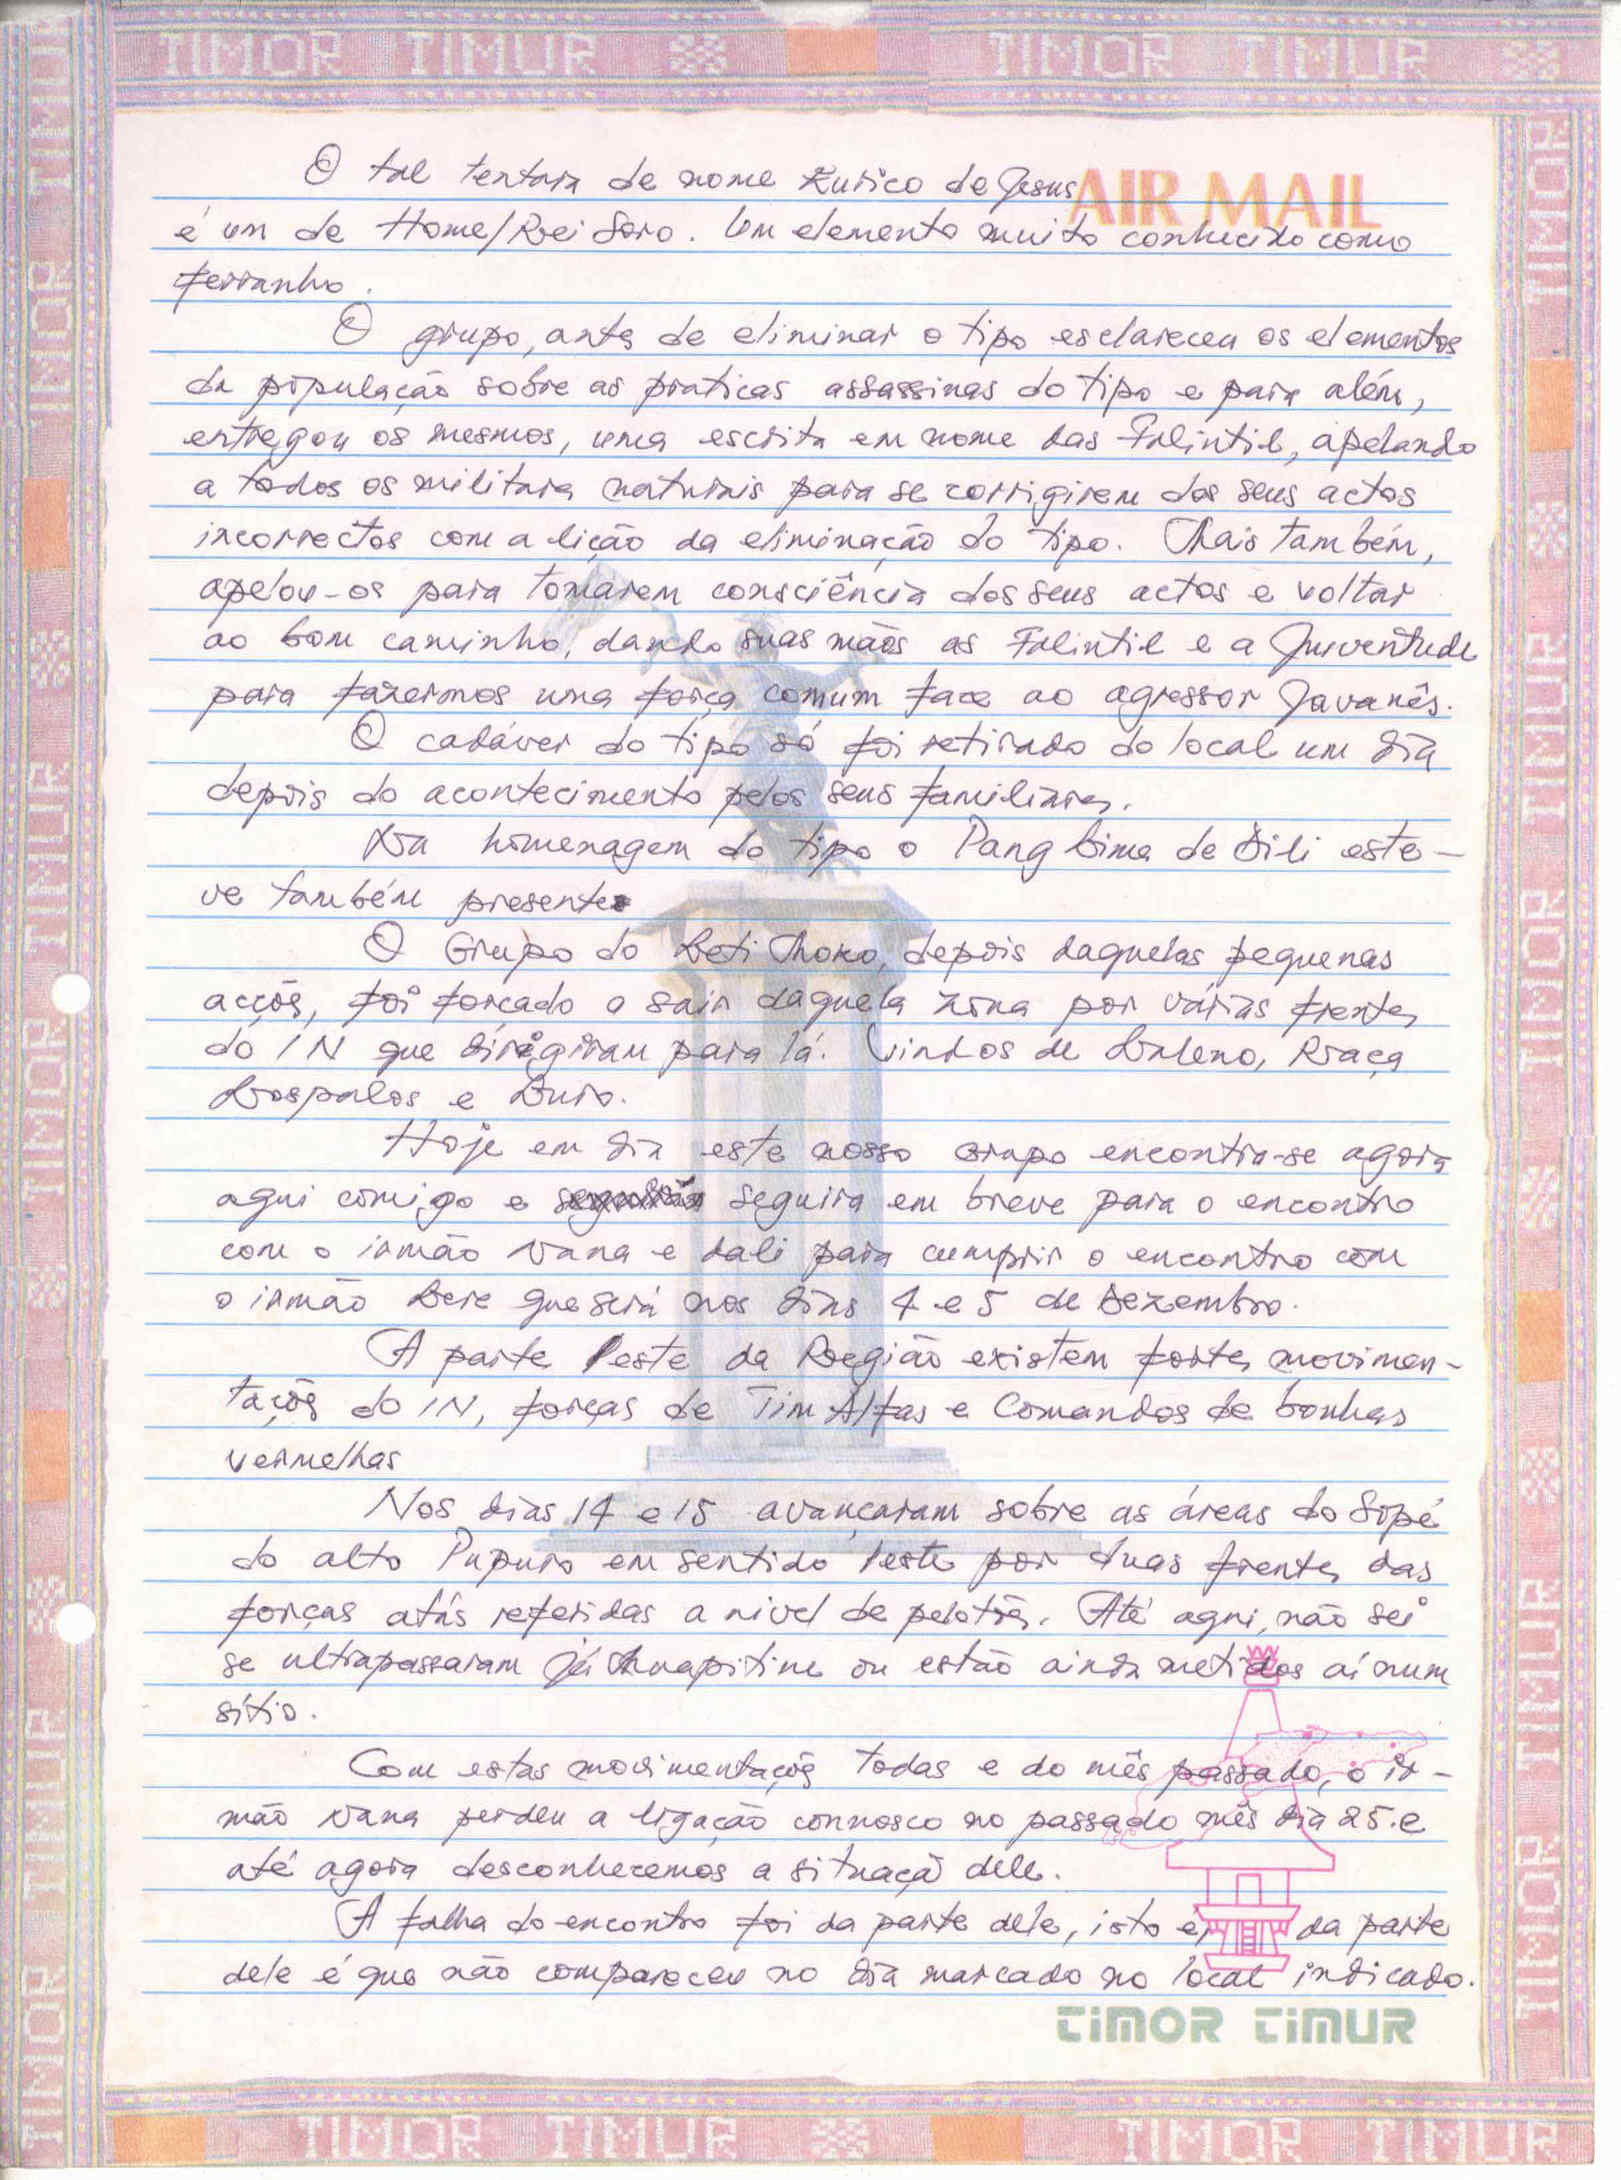 TIMOR TIMUR TIMOR TIMUR
AIR MAIL
O tal tentara de nome Eurico de Jesus
é um de Home/Rei Soro. Um elemento muito conhecido como
ferranho.
O grupo, antes de eliminar o tipo esclareceu os elementos
da população sobre as praticas assassinas do tipo e para além,
entregou os mesmos, uma escrita em nome das Falintil, apelando
a todos os militares naturais para se corrigirem dos seus actos
incorrectos com a lição da eliminação do tipo. Mais também,
apelou-os para tomarem consciência dos seus actos e voltar
ao bom caminho, dando suas mãos as Falintil e a Juventude
para fazermos uma força comum face ao agressor Javanês.
O cadáver do tipo só foi retirado do local um dia
depois do acontecimento pelos seus familiares.
Na homenagem do tipo o Pang bima de Dili este-
ve também presente
O Grupo do Leti Moko, depois daquelas pequenas
acções, foi forçado a sair daquela zona por várias frentes
do IN que dirigiram para lá. Vindos de Baleno, Raça
Lospalos e Luro.
Hoje em dia este nosso grupo encontra-se agora
aqui comigo e seguira em breve para o encontro
com o irmão Nana e dali para cumprir o encontro com
o irmão Lere que será nos dias 4 e 5 de Dezembro.
A parte leste da Região existem fortes movimen-
tações do IN, forças de Tim Alfas e Comandos de bonhas
vermelhas
Nos dias 14 e 15 avançaram sobre as áreas do Sopé
do alto Pupuro em sentido leste por duas frentes das
forças atrás referidas a nivel de pelotões. Até aqui, não sei
se ultrapassaram já ou estão ainda metidos aí num
sítio.
Com estas movimentações todas e do mês passado, o ir-
mão Nana perdeu a ligação connosco no passado mês dia 25. e
até agora desconhecemos a situaçã dele.
A falha do encontro foi da parte dele, isto é, da parte
dele é que não compareceu no dia marcado no local indicado.
TIMOR TIMUR
TIMOR TIMUR TIMOR TIMUR